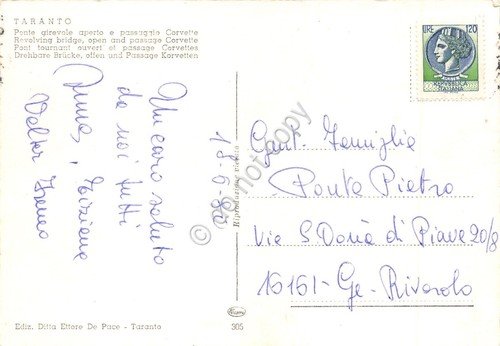 TARANTO
Ponte girevole aperto e passaggio Corvette
Revolving bridge, open and passage Corvette
Pont tournant ouvert et passage Corvettes
Drehbare Brücke, offen und Passage Korvetten
LIRE 120
Un caro saluto
da noi tutti
Anna, Tiziana
Walter
18-6-80
Gent. Famiglia
Ponte Pietro
Via S. Donà di Piave 20/8
16161 - Ge - Rivarolo
Riproduzione vietata
do not copy
Ediz. Ditta Ettore De Pace - Taranto
305